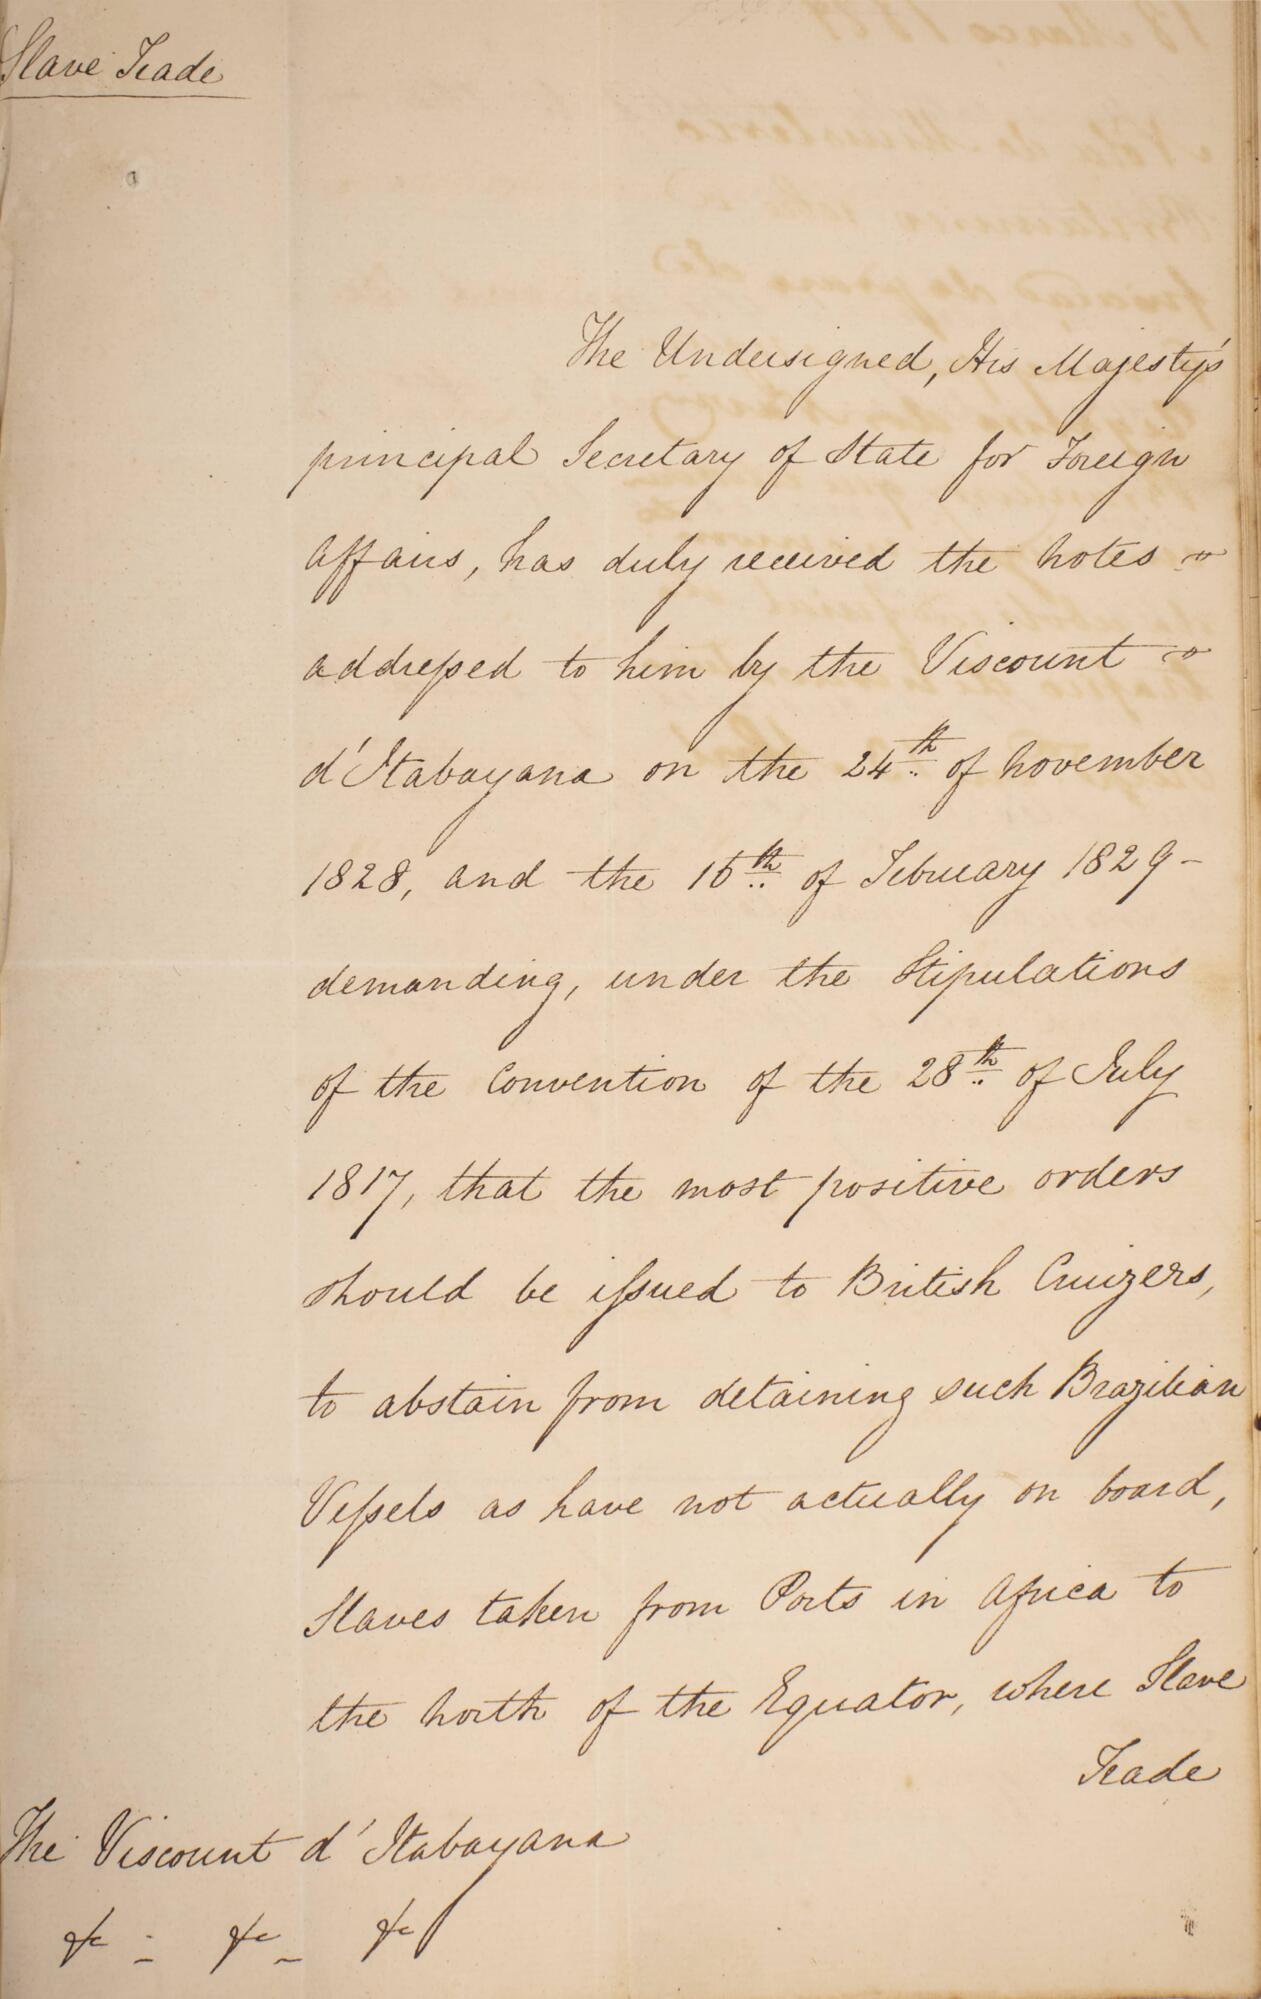 Slave Trade
The Undersigned, His Majesty's
principal Secretary of State for Foreign
Affairs, has duly received the notes
addressed to him by the Viscount
d'Itabayana on the 24th of November
1828, and the 16th of February 1829 -
demanding, under the Stipulations
of the Convention of the 28th of July
1817, that the most positive orders
should be issued to British Cruizers,
to abstain from detaining such Brazilian
Vessels as have not actually on board,
Slaves taken from Ports in Africa to
the North of the Equator, where Slave
Trade
The Viscount d'Itabayana
&c - &c - &c